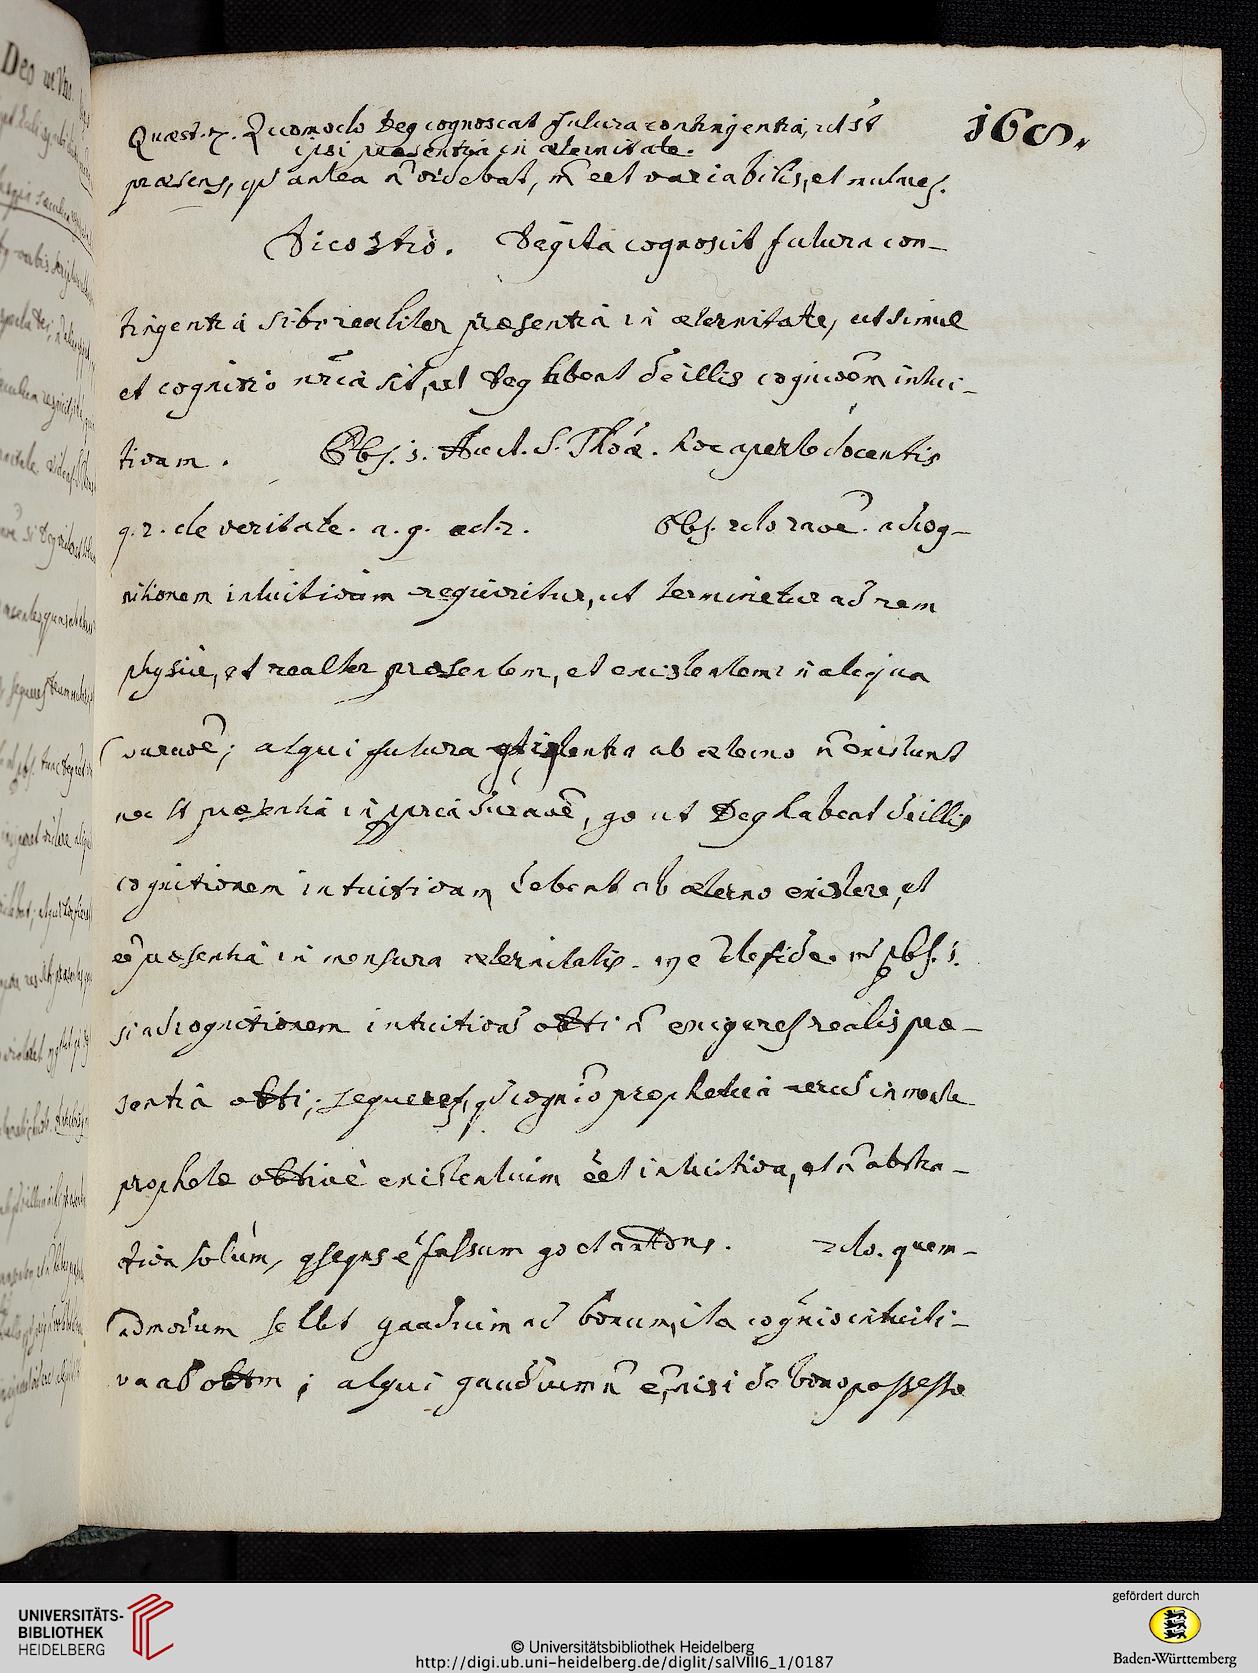 Quæst. 7. Quomodo Deg cognoscat futura contingentia, ut st̃
168.
ipsi præsentia in æternitate.
præsens, qd̃ antea ñ videbat, m̃ eet variabilis, et mutares.
Dico 3tiò. Deg ita cognoscit futura con-
tingentiã sibi realiter præsentiã in æternitate, ut simul
et cognitio nr̃ia sit, vel Deg hbeat de illis cogniõem intui-
tivam. Obj. 1. Auct. S. Thoæ. hoc aperte docentis
q. 2. de veritate. a. 9. ad. 2. Obj. 2do raõe. ad cog-
nitionem intuitivam requiritur, ut terminetur ad rem
physicè, et realiter præsentem, et existentem in aliqua
duraõe; atqui futura ab æterno ñ existunt
nec st̃ præsentiã in pp̃riã duraõe, go ut Deg habeat de illis
cognitionem intuitivam debent ab æterno existere, et
eẽ præsentiã in mensura æternitatis. defide. m̃ pbf. 1.
si ad cognitionem intuitivã obti ñ exigeres realis præ-
sentiã obti; sequeres, qd̃ cogniõ prophetica rerum in mente
prophetæ obtivè existentium eẽt intuitiva, et ñ abstra-
ctiva solùm, qseqns ẽ falsum go et antdns. 2do. quem-
admodum se hbt gaudium ad bonum, ita cognio intuiti-
va ad obtm; atqui gaudium ñ ẽ, nisi de bono possesso
UNIVERSITÄTS-
BIBLIOTHEK
HEIDELBERG
© Universitätsbibliothek Heidelberg
http://digi.ub.uni-heidelberg.de/diglit/salVIII6_1/0187
gefördert durch
Baden-Württemberg